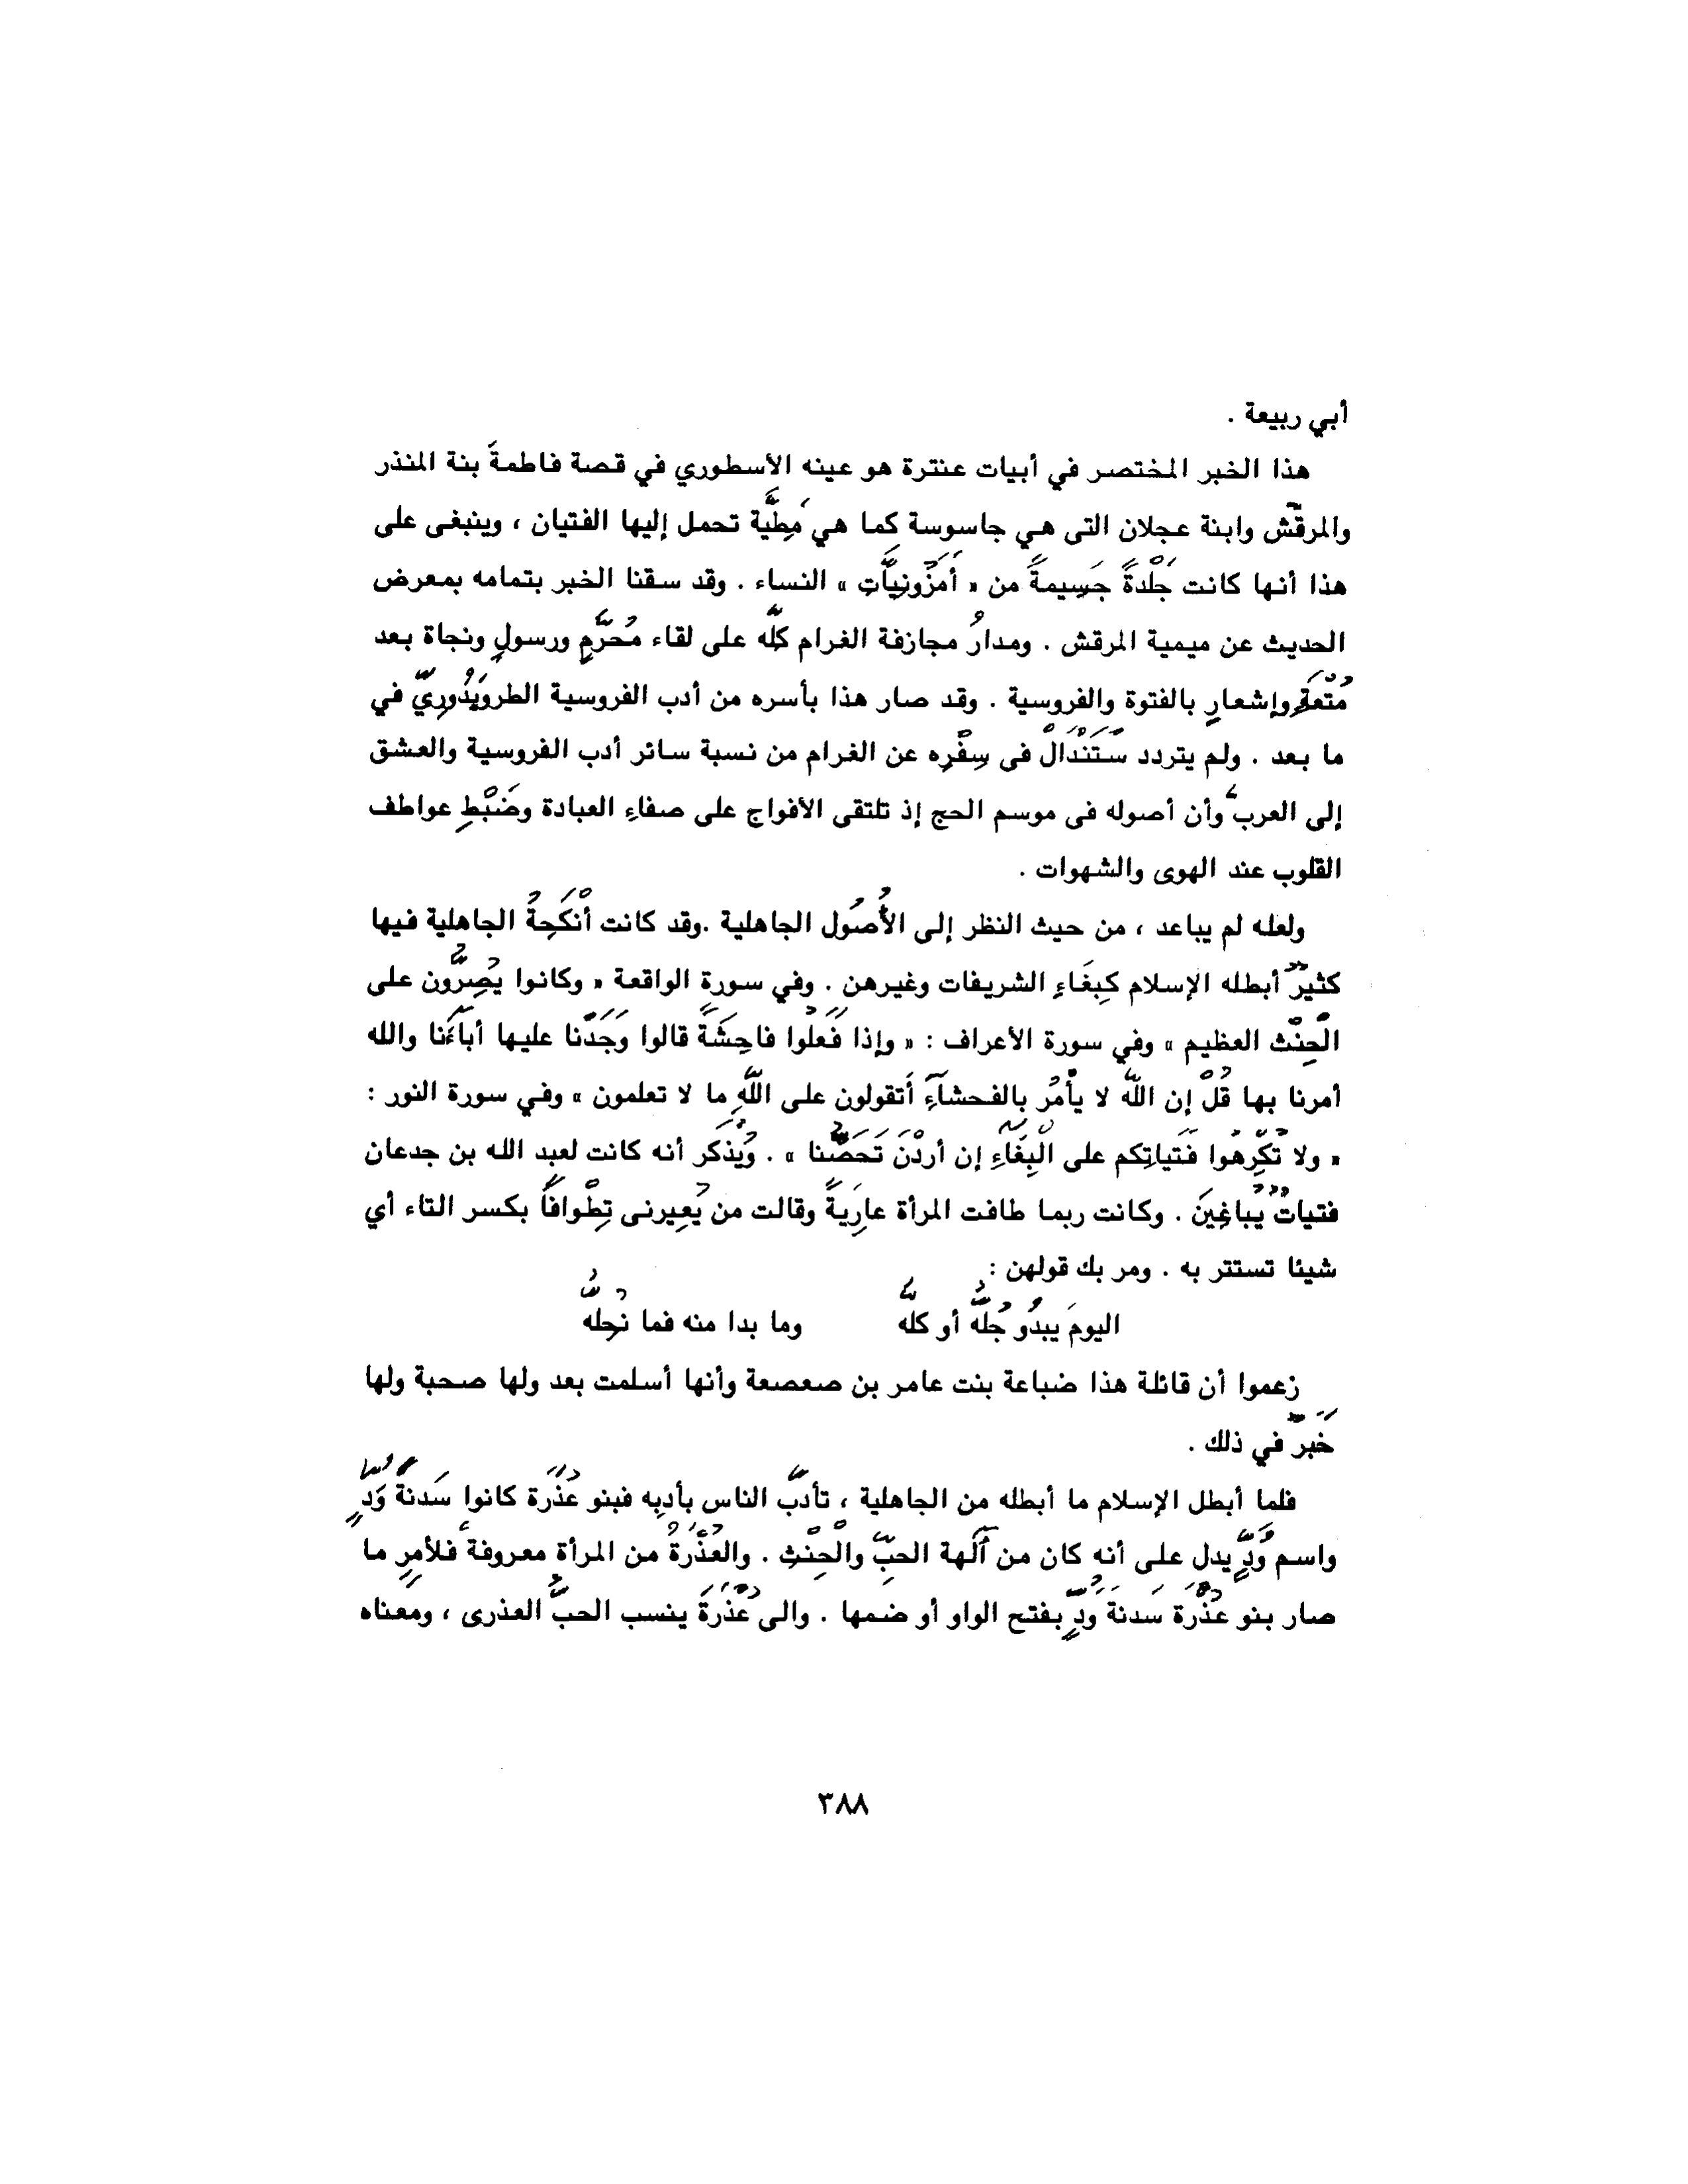 أبي ربيعة .
هذا الخبر المختصر في أبيات عنترة هو عينه الأسطوري في قصة فاطمةَ بنة المنذر
والمرقّش وابنة عجلان التى هي جاسوسة كما هي مَطِيَّة تحمل إليها الفتيان ، وينبغى على
هذا أنها كانت جَلْدةً جَسِيمةً من « أمَزُونِيَّاتِ » النساء . وقد سقنا الخبر بتمامه بمعرض
الحديث عن ميمية المرقش . ومدارُ مجازفة الغرام كلِّه على لقاء مُحَرَّمٍ ورسولٍ ونجاة بعد
مُتْعَةٍ وإشعارٍ بالفتوة والفروسية . وقد صار هذا بأسره من أدب الفروسية الطروبَدُورِيّ في
ما بعد . ولم يتردد سْتَنْدَالْ فى سِفْرِه عن الغرام من نسبة سائر أدب الفروسية والعشق
إلى العرب وأن أصوله فى موسم الحج إذ تلتقى الأفواج على صفاءِ العبادة وضَبْطِ عواطف
القلوب عند الهوى والشهوات .
ولعله لم يباعد ، من حيث النظر إلى الأُصُول الجاهلية .وقد كانت أَنْكَحِةُ الجاهلية فيها
كثيرٌ أبطله الإسلام كبِغَاءِ الشريفات وغيرهن . وفي سورة الواقعة « وكانوا يُصِرُّون على
الْحِنْث العظيم » وفي سورة الأعراف : « وإذا فَعَلُوا فاحِشَةً قالوا وَجَدْنا عليها أباءَنا والله
أمرنا بها قُلْ إن اللّهَ لا يأْمُر بالفحشآءِ أَتقولون على اللّهِ ما لا تعلمون » وفي سورة النور :
« ولا تُكْرِهُوا فَتَياتِكم على الْبِغَآءِ إن أردْنَ تَحَصُّنا » . ويُذْكَر أنه كانت لعبد الله بن جدعان
فتياتٌ يُباغِينَ . وكانت ربما طافت المرأة عارِيَةً وقالت من يُعِيرنى تِطْوافًا بكسر التاء أي
شيئا تستتر به . ومر بك قولهن :
اليومَ يبدُو جُلُّهُ أو كلُّه وما بدا منه فما نُحِلُّهُ
زعموا أن قائلة هذا ضباعة بنت عامر بن صعصعة وأنها أسلمت بعد ولها صحبة ولها
خَبَرٌ في ذلك .
فلما أبطل الإسلام ما أبطله من الجاهلية ، تأدَّبَ الناس بأدبِه فبنو عُذْرَة كانوا سَدنةَ وَدٍّ
واسم وَدٍّ يدل على أنه كان من آلهة الحبِّ والْحِنْثِ . والعُذْرَةُ من المرأة معروفة فلأمرٍ ما
صار بنو عُذْرَة سَدنةَ وَدٍّ بفتح الواو أو ضمها . والى عُذْرَةَ ينسب الحبُّ العذرى ، ومعناه
٣٨٨